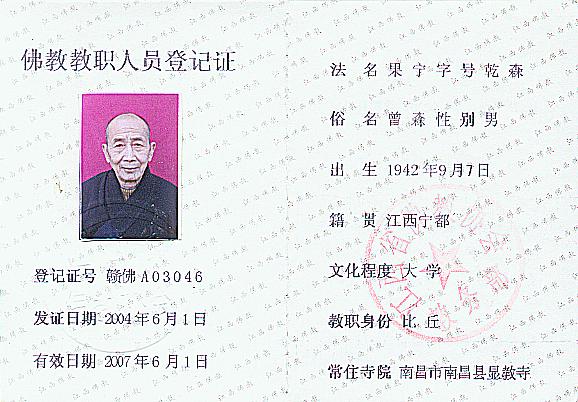 佛教教职人员登记证
登记证号 赣佛 A03046
发证日期 2004年6月1日
有效日期 2007年6月1日
法名 果宁 字号 乾森
俗名 曾森 性别 男
出生 1942年9月7日
籍贯 江西宁都
文化程度 大学
教职身份 比丘
常住寺院 南昌市南昌县显教寺